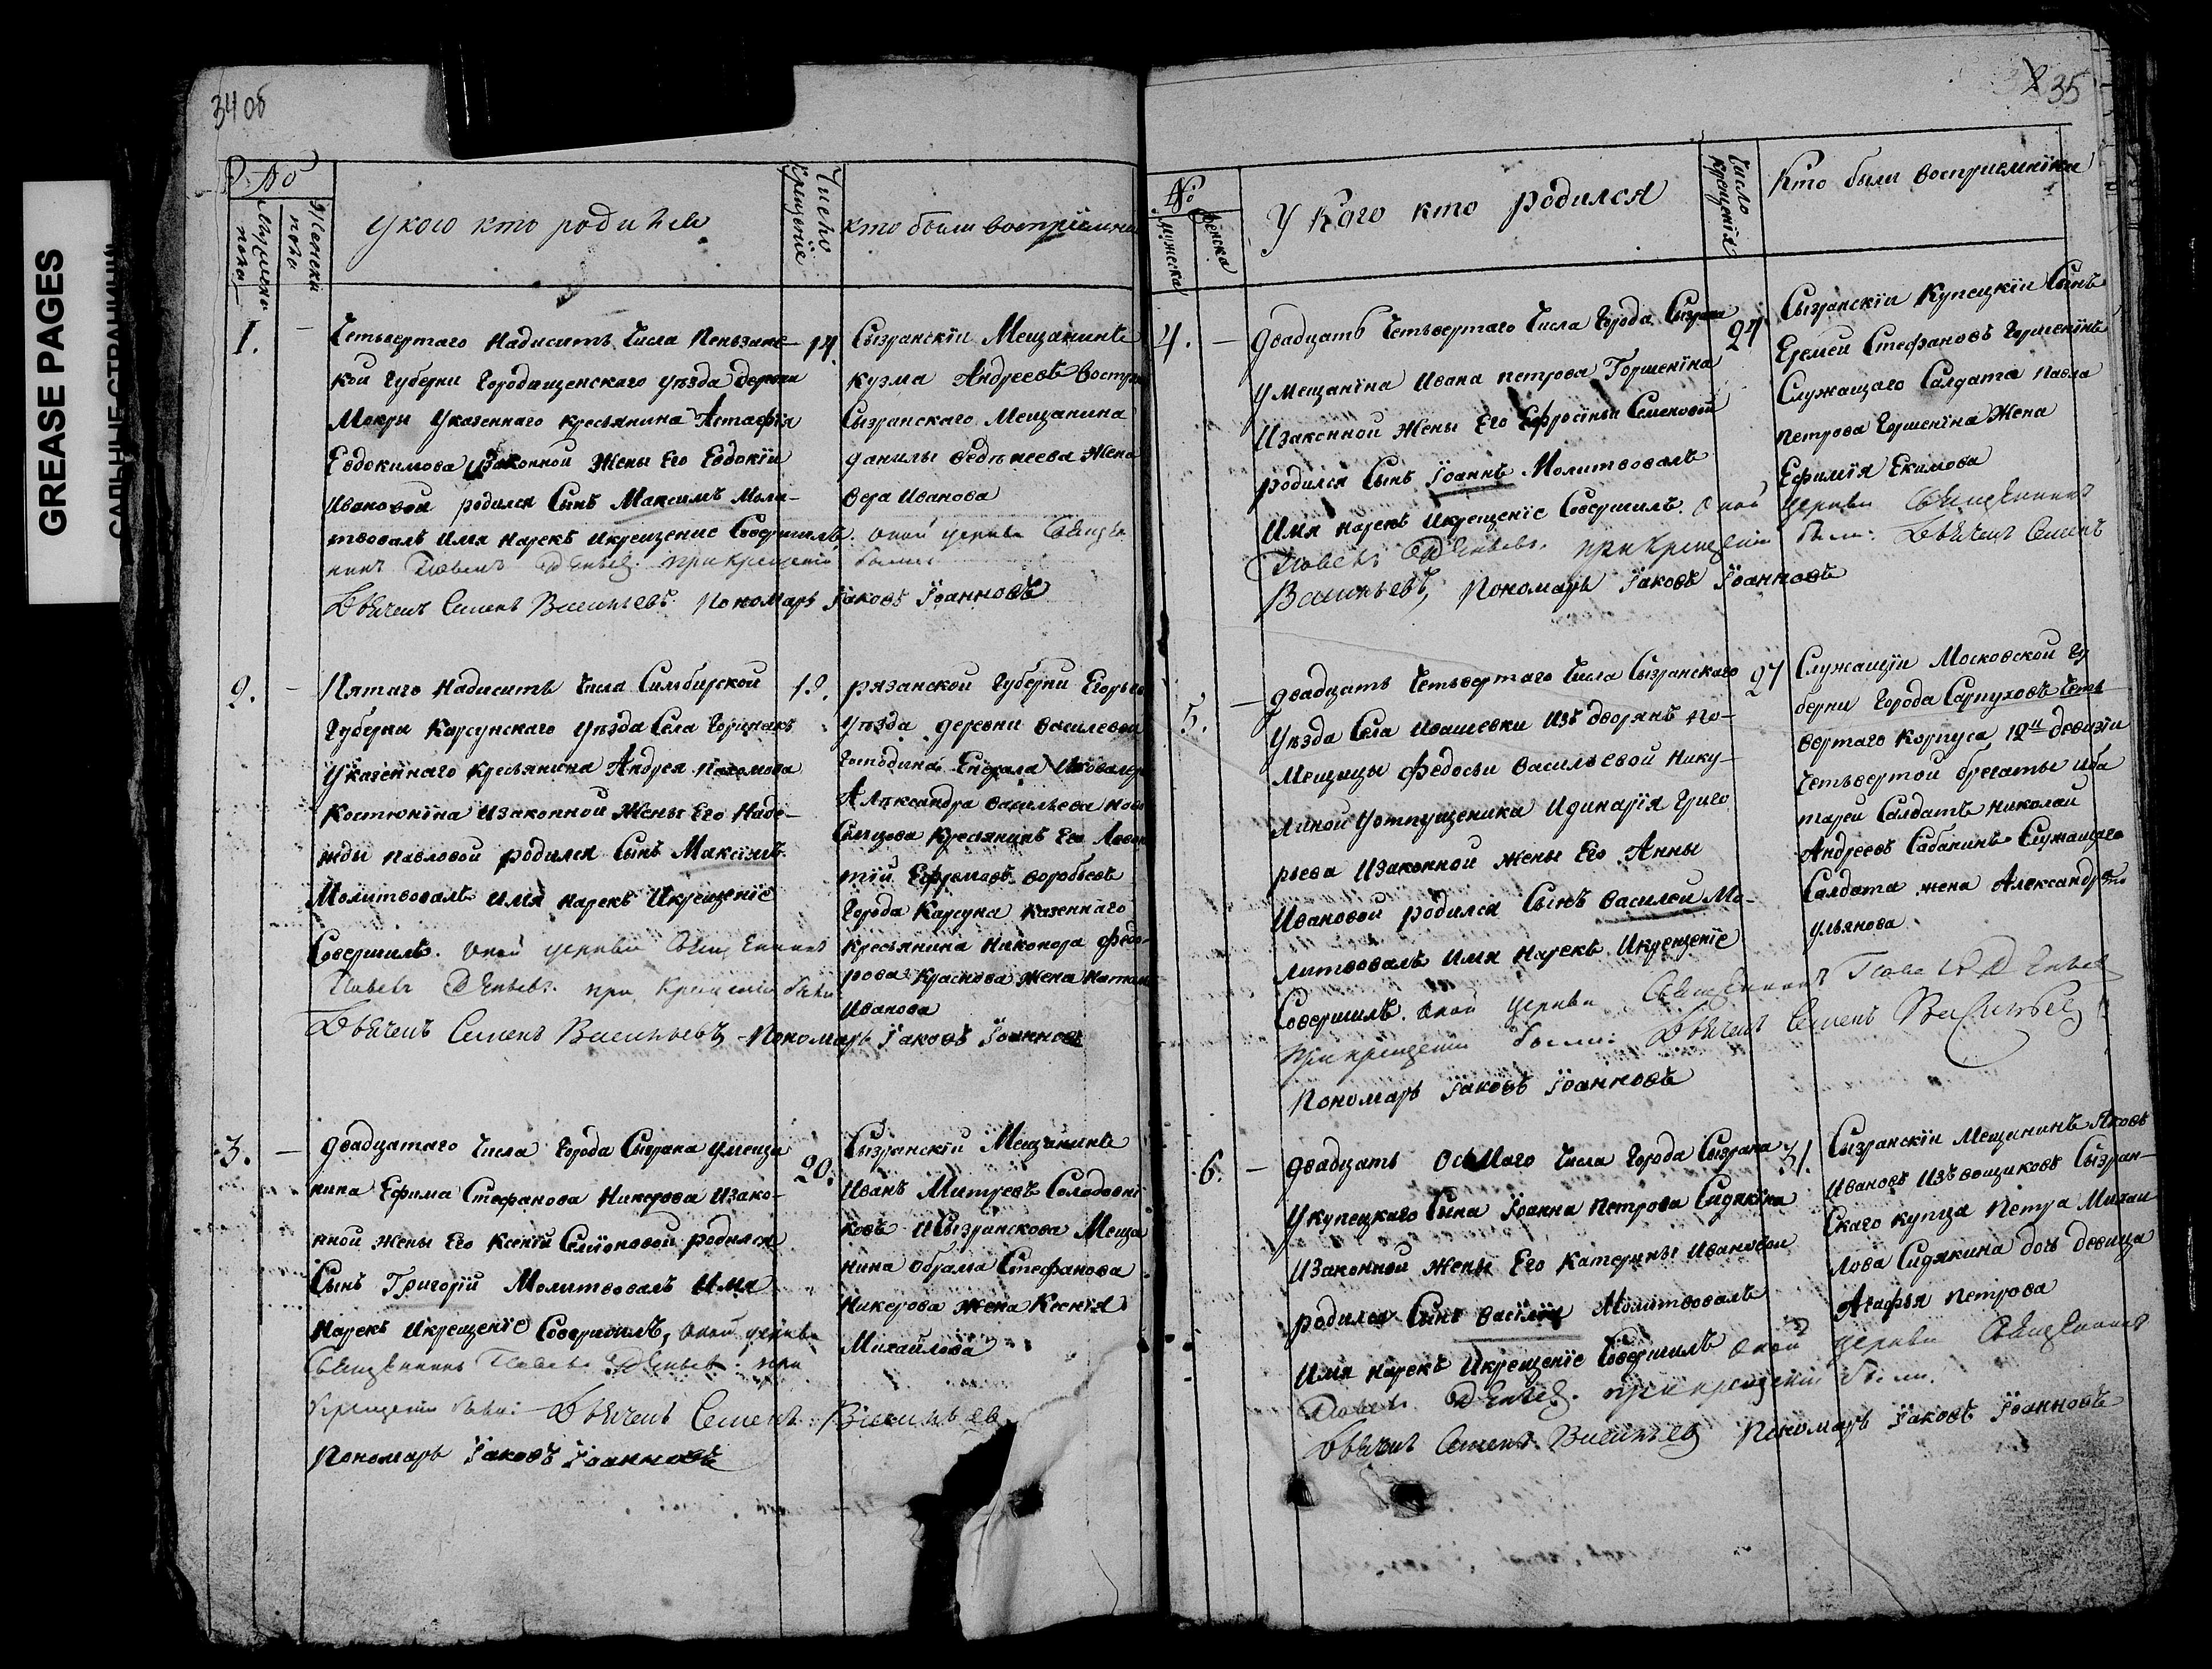 GREASE PAGES
САЛЬНЫЕ СТРАНИЦЫ
34 об
№
Мужеска пола
Женска пола
У кого кто родился
Число крещенія
кто были воспріемни
1.
Четьвертаго надисить Числа Пензинс–
кой губерни Городищенскаго уѣзда деревни
Мокры Указеннаго кресьянина Астафія
Евдокимова изаконной Жены Его Евдокіи
Ивановой родился Сынъ Максимъ Моли–
твовалъ имя нарекъ икрещение Совершилъ. оной церкви Священ
никъ Павелъ при крещеніи были
Дьячекъ Семенъ Васильевъ. Пономарь Іаковъ Іоанновъ
14
Сызранскіи Мещанинъ
Кузма Андреевъ
Сызранскаго Мещанина
данилы Жена
Вера Иванова
2.
Пятаго надисить Числа Симбирской
Губерни Карсунскаго уѣзда Села
Указеннаго Кресьянина Андрея пахомова
Костюнїна изаконной Жены Его Наде–
жды павловой родился Сынъ Максїмъ
Молитвовалъ имя нарекъ икрещенїе
Совершилъ. оной церкви Священникъ
Павелъ при крещеніи были
Дьячекъ Семенъ Васильевъ Пономарь Іаковъ Іоанновъ
рязанской губерни
Уѣзда деревни василевой
господина Енерала
Александра васильева
Кресьянинъ Его
Ефремовъ воробьевъ
Города Карсуна казеннаго
кресьянина никонора федо–
рова Краснова жена
Иванова
3.
двадцатаго Числа Города Сызрана умеща
нина Ефима Стефанова Никерова изако–
нной жены Его Ксенїи родился
Сынъ Григорїй Молитвовалъ имя
нарекъ икрещенїе Совершилъ, оной церкви
Священникъ Павелъ при
крещеніи были: Дьячекъ Семенъ Васильевъ
Пономарь Іаковъ Іоанновъ
20.
Сызранскїй Мещанинъ
Иванъ Митревъ Солодовнї
ковъ исызранскова Меща
нина Обрама Стефанова
Никерова жена Ксенїя
Михайлова
35
№
мужеска
женска
У Кого кто родился
Число крещенія
Кто были воспріемніки
4.
двадцать Четьвертаго Числа города Сызрана
Умещанїна Ивана петрова Горшенїна
изаконной жены Его Ефросїньи Семеновой
родился Сынъ Іоаннъ Молитвовалъ
имя нарекъ икрещенїе Совершилъ. оной церкви Священникъ
Павелъ при крещеніи были: Дьячекъ Семенъ
Васильевъ, Пономарь Іаковъ Іоанновъ
24
Сызранскіи Купецкїи Сынъ
Еремеи Стефановъ Горшенїнъ
Служащаго Салдата павла
петрова Горшенїна Жена
Ефимїя Екимова
5.
двадцать Четьвертаго Числа Сызранскаго
Уѣзда Села Ивашевки изъ дворянъ по–
мещицы федосьи васильевой Нику–
линой уотпущеника Григо
рьева изаконной жены Его Анны
Ивановой родился Сынъ василеи Мо–
литвовалъ имя нарекъ икрещенїе
Совершилъ. оной церкви Священникъ Павелъ
при крещении были: Дьячекъ Семенъ Васильевъ
Пономарь Іаковъ Іоанновъ
27
Служащїи Московской гу
берни города Сарпуховъ Четь
вертаго корпуса, 12й девизїи
Четьвертой брегаты
Салдатъ николаи
Андреевъ Сабанинъ Служащаго
Салдата жена Александра
ульянова
6.
двадцать Осьмаго Числа города Сызрана
Укупецкаго Сына Іоанна Петрова Сидякїна
изаконной жены Его Катерины Ивановой
родился Сынъ васїлїи Молитвовалъ
имя нарекъ икрещенїе Совершилъ оной церкви Священникъ
Павелъ при крещеніи были.
Дьячекъ Семенъ Васильевъ Пономарь Іаковъ Іоанновъ
31.
Сызранскїи мещининъ Яковъ
Ивановъ Извощиковъ Сызран–
Скаго купца Петра Михаи
лова Сидякина дочь девица
Агафья петрова